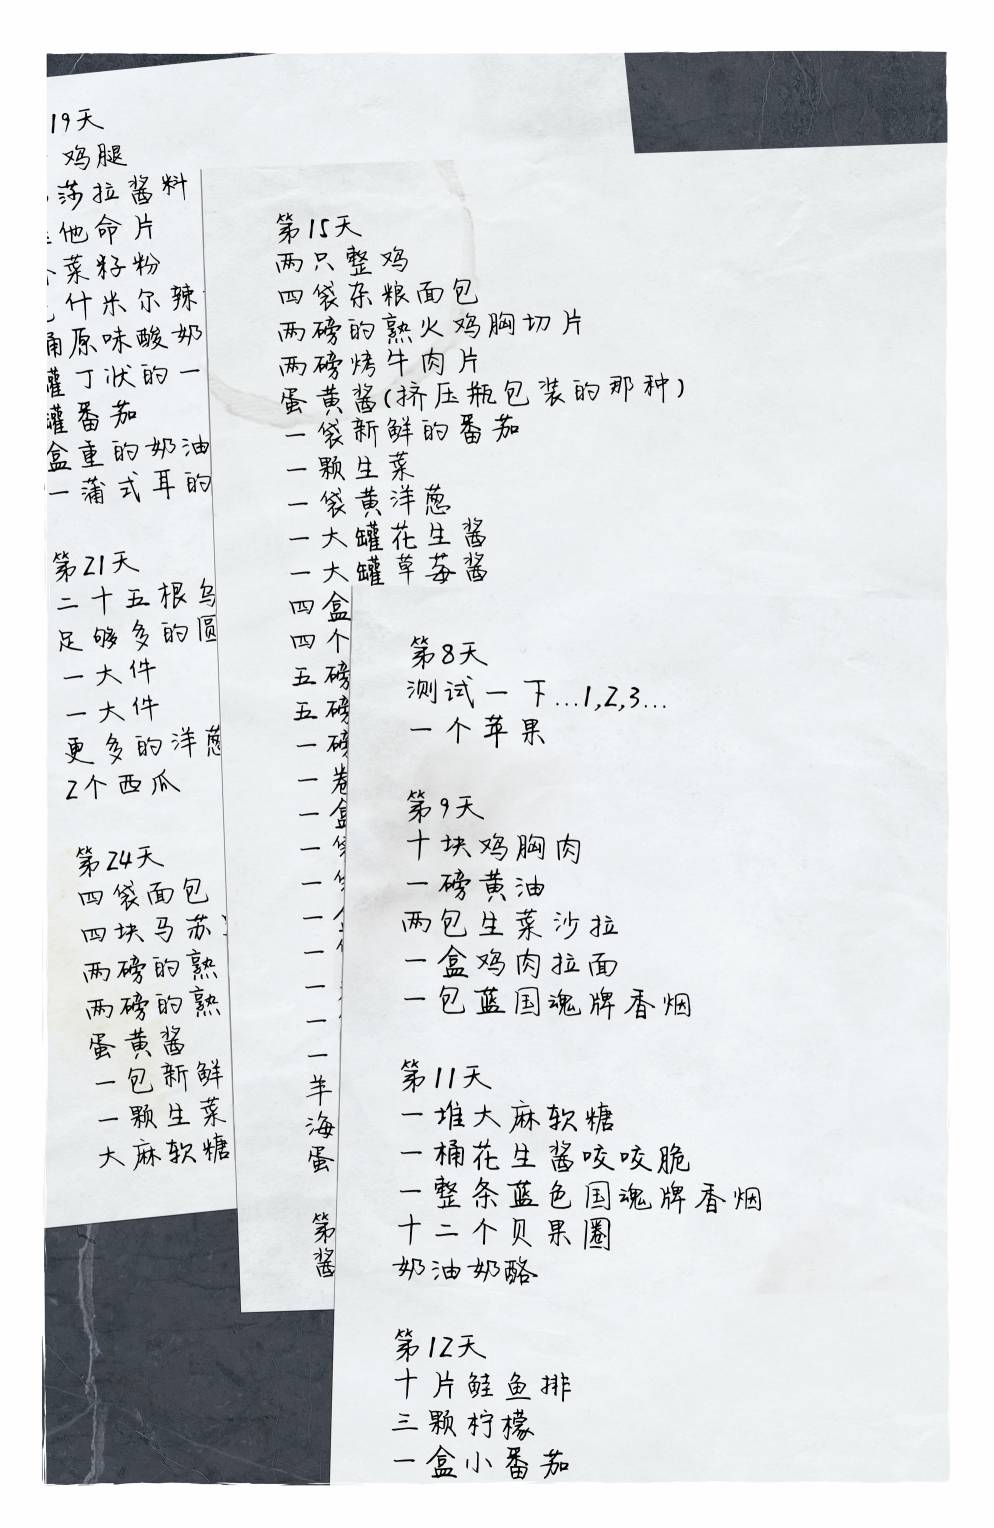 19天
鸡腿
莎拉酱料
他命片
菜籽粉
什米尔辣
原味酸奶
罐丁状的一
罐番茄
盒重的奶油
一蒲式耳的
第21天
二十五根乌
足够多的圆
一大件
一大件
更多的洋葱
2个西瓜
第24天
四袋面包
四块马苏
两磅的熟
两磅的熟
蛋黄酱
一包新鲜
一颗生菜
大麻软糖
第15天
两只整鸡
四袋杂粮面包
两磅的熟火鸡胸切片
两磅烤牛肉片
蛋黄酱(挤压瓶包装的那种)
一袋新鲜的番茄
一颗生菜
一袋黄洋葱
一大罐花生酱
一大罐草莓酱
四盒
四个
五磅
五磅
一磅
一卷
一盒
一
一
一
一
一
一
一
羊
海
蛋
第
酱
第8天
测试一下...1,2,3...
一个苹果
第9天
十块鸡胸肉
一磅黄油
两包生菜沙拉
一盒鸡肉拉面
一包蓝国魂牌香烟
第11天
一堆大麻软糖
一桶花生酱咬咬脆
一整条蓝色国魂牌香烟
十二个贝果圈
奶油奶酪
第12天
十片鲑鱼排
三颗柠檬
一盒小番茄